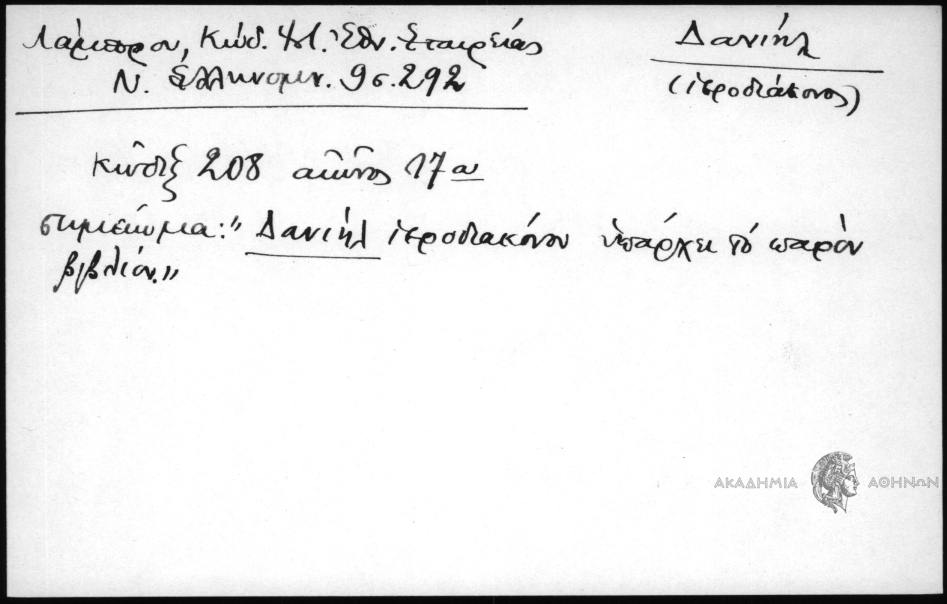 Λάμπρου, Κώδ. Ἱστ. Ἐθν. Ἑταιρείας
Ν. Ἑλληνομν. 9 σ. 292
Δανιήλ
(ἱεροδιάκονος)
Κώδιξ 208 αἰῶνος 17ου
σημείωμα: "Δανιήλ ἱεροδιακόνου ὑπάρχει τό παρόν
βιβλίον."
ΑΚΑΔΗΜΙΑ ΑΘΗΝΩΝ